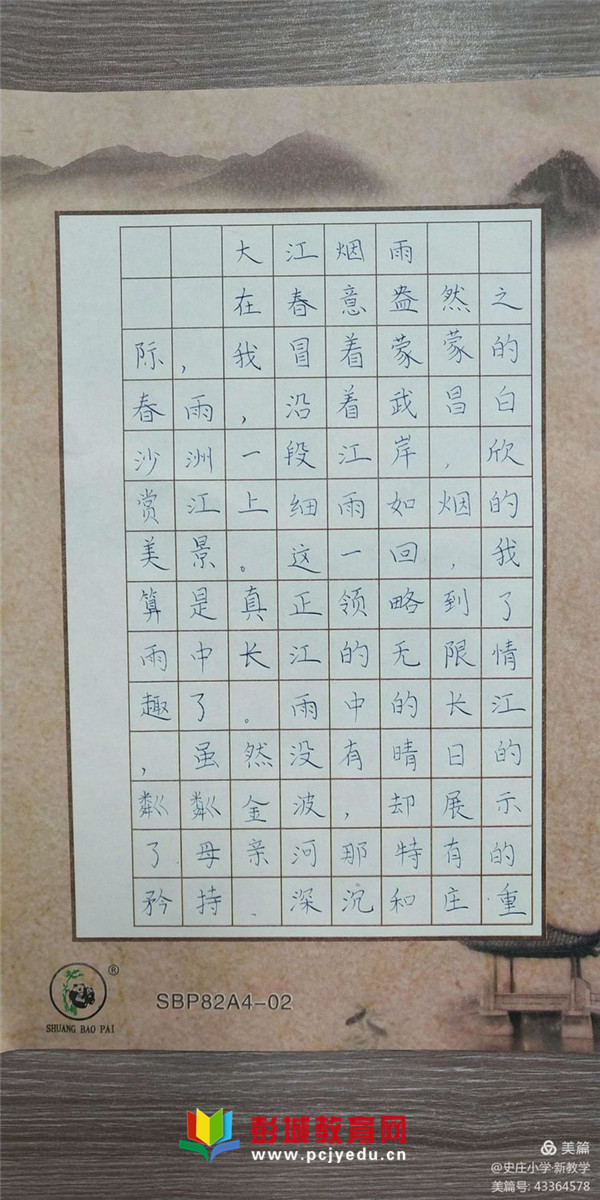 大江烟雨
在春意盎然之
际，我冒着蒙蒙的
春雨，沿着武昌白
沙洲一段江岸，欣
赏江上细雨如烟的
美景。这一回，我
算是真正领略到了
雨中长江的无限情
趣了。雨中的长江
，虽然没有晴日的
粼粼金波，却展示
了母亲河那特有的
矜持、深沉和庄重
®
SHUANG BAO PAI
SBP82A4-02
彭城教育网
www.pcjyedu.cn
美篇
@史庄小学·新教学
美篇号: 43364578